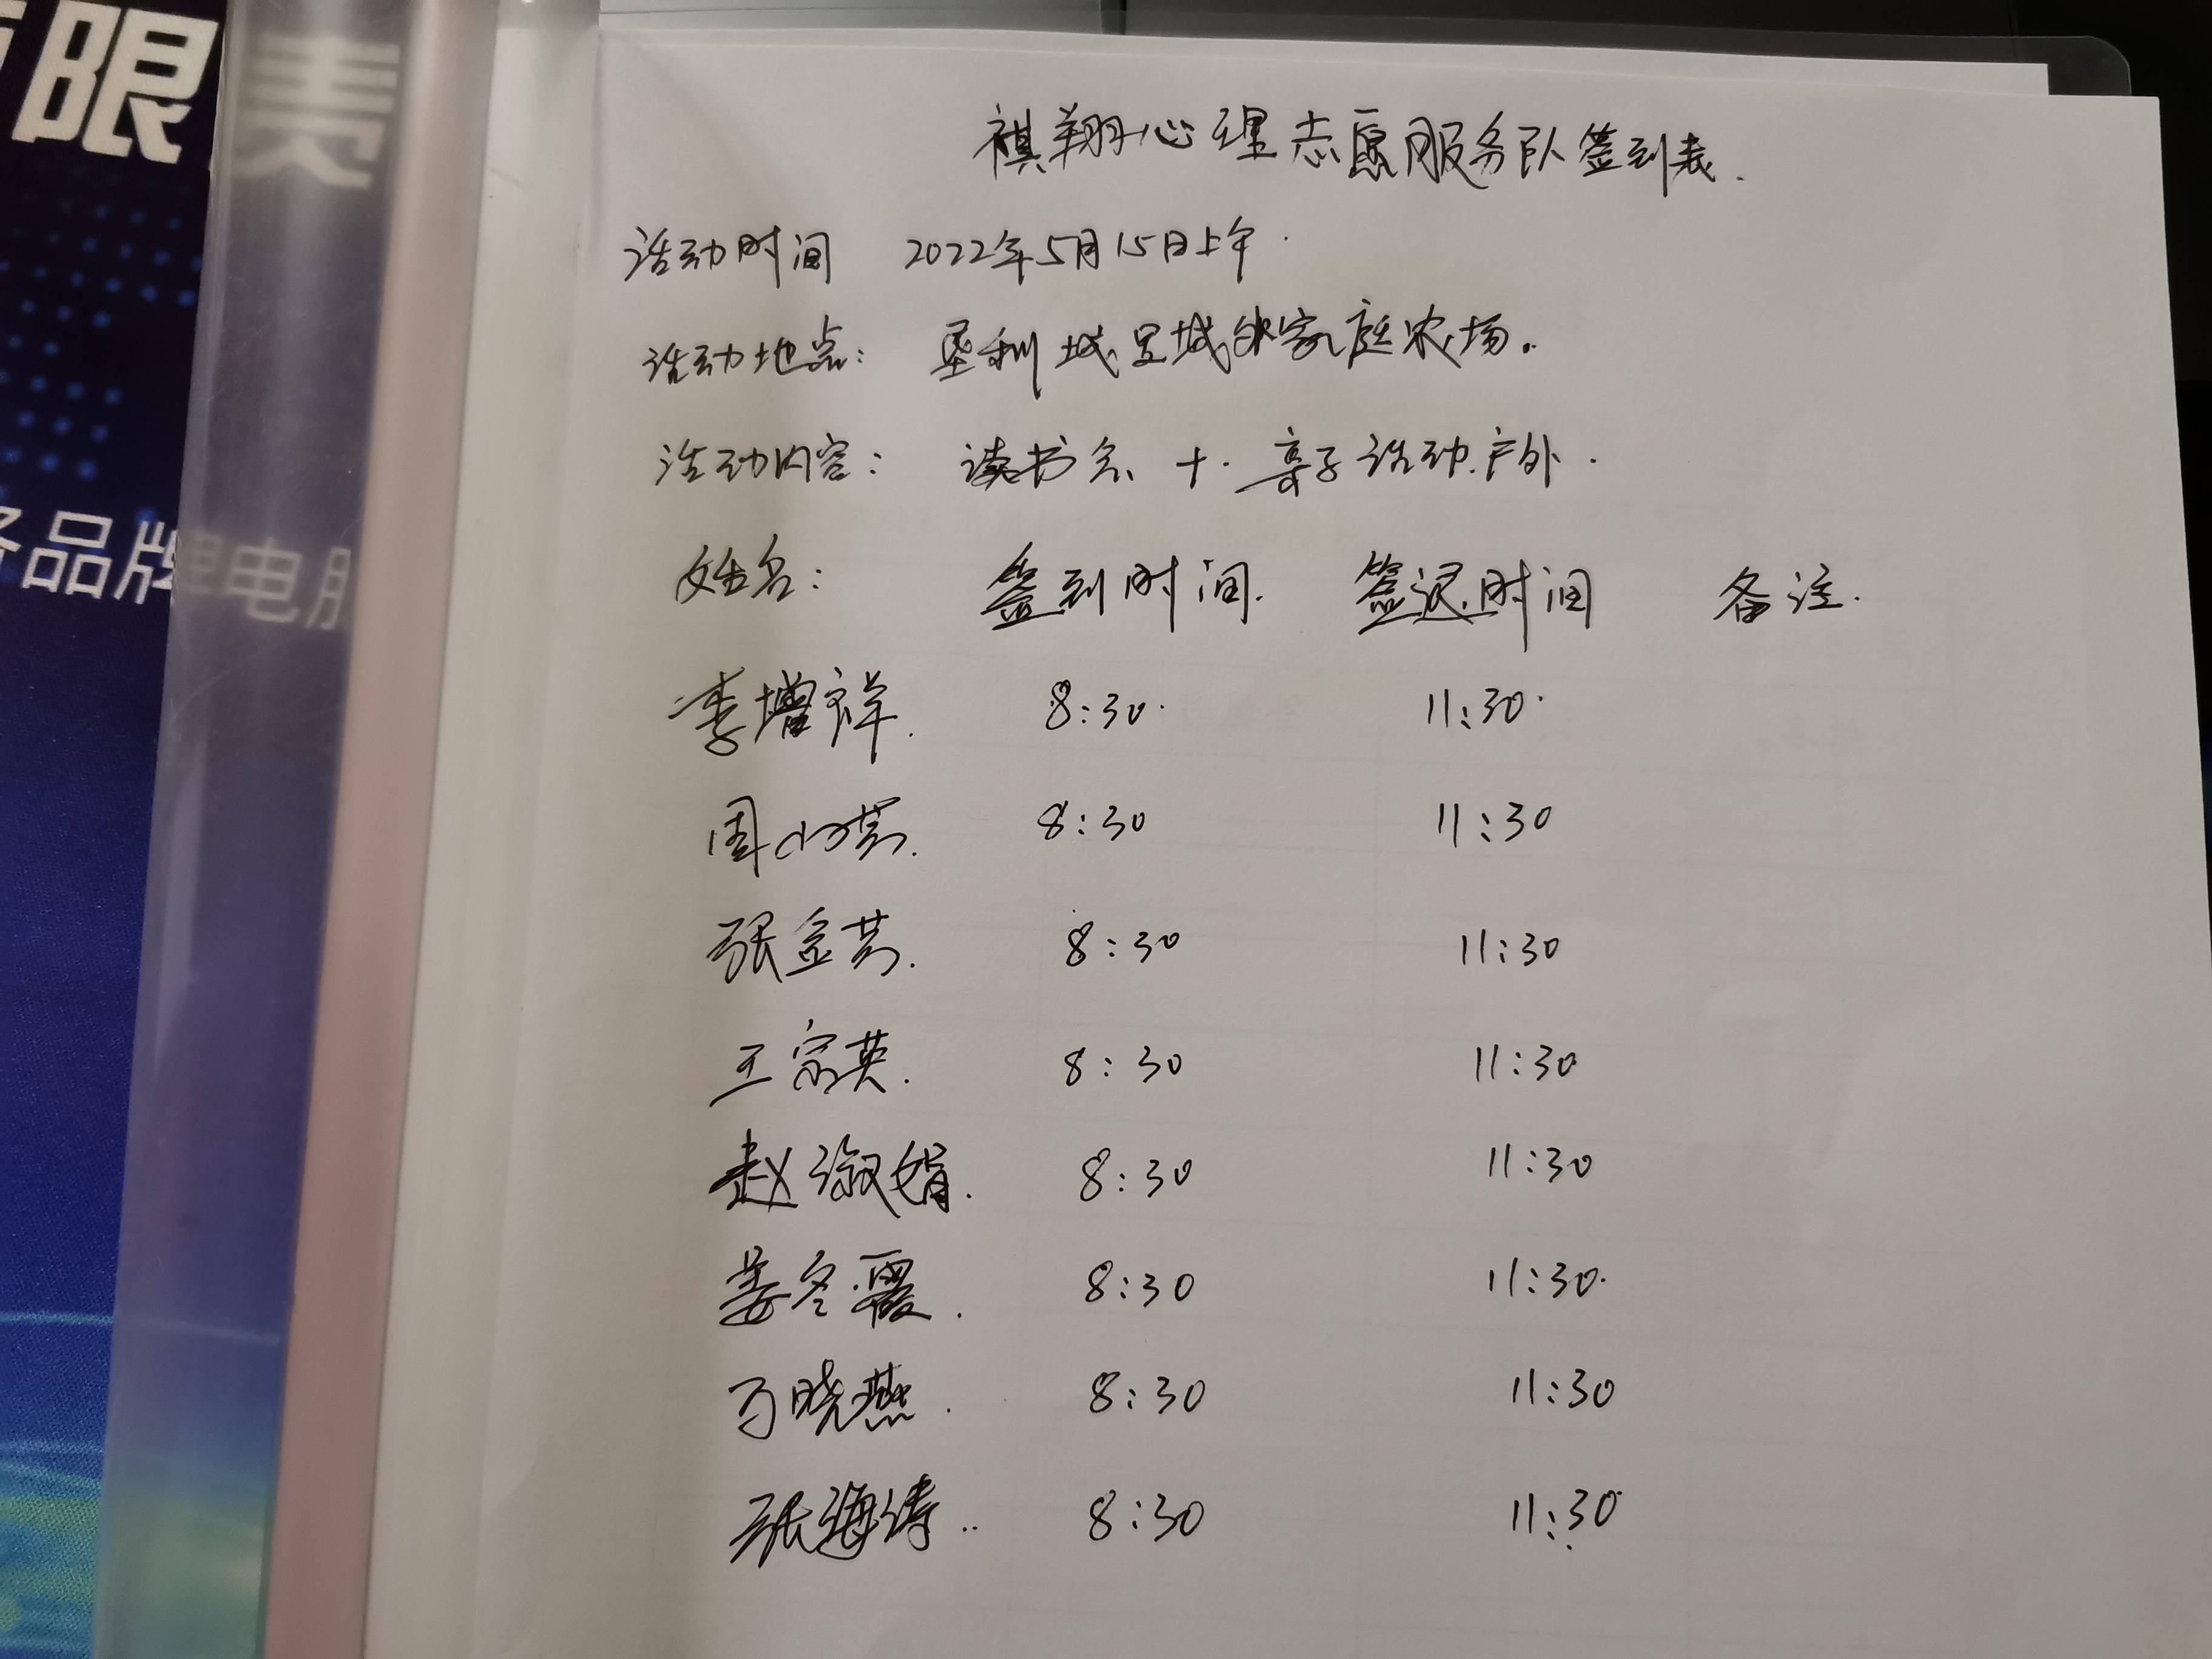 限责
品牌电脑
祺翔心理志愿服务队签到表.
活动时间 2022年5月15日上午.
活动地点: 垦利城里城外家庭农场。
活动内容: 读书会 + 亲子活动.户外.
姓名: 签到时间. 签退时间 备注.
李增祥. 8:30. 11:30.
周小芳. 8:30 11:30
张金芳. 8:30 11:30
王宗英. 8:30 11:30
赵淑娟. 8:30 11:30
姜冬霞. 8:30 11:30.
晓燕. 8:30 11:30
张海涛.. 8:30 11:30